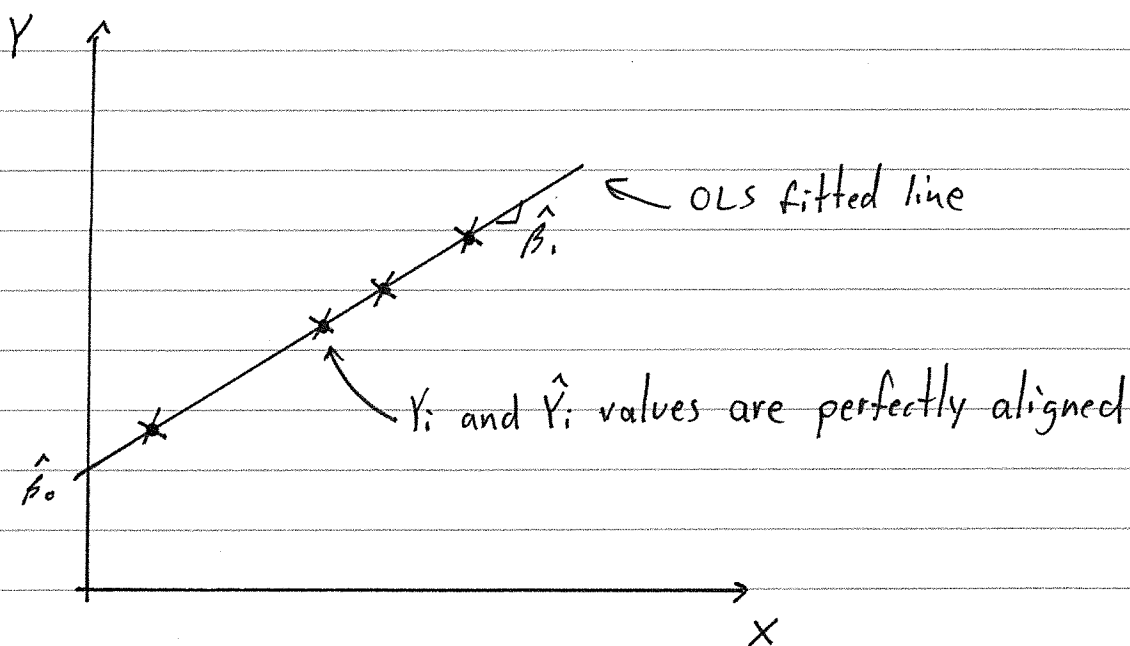 Y
OLS fitted line
β̂₁
Yᵢ and Ŷᵢ values are perfectly aligned
β̂₀
X